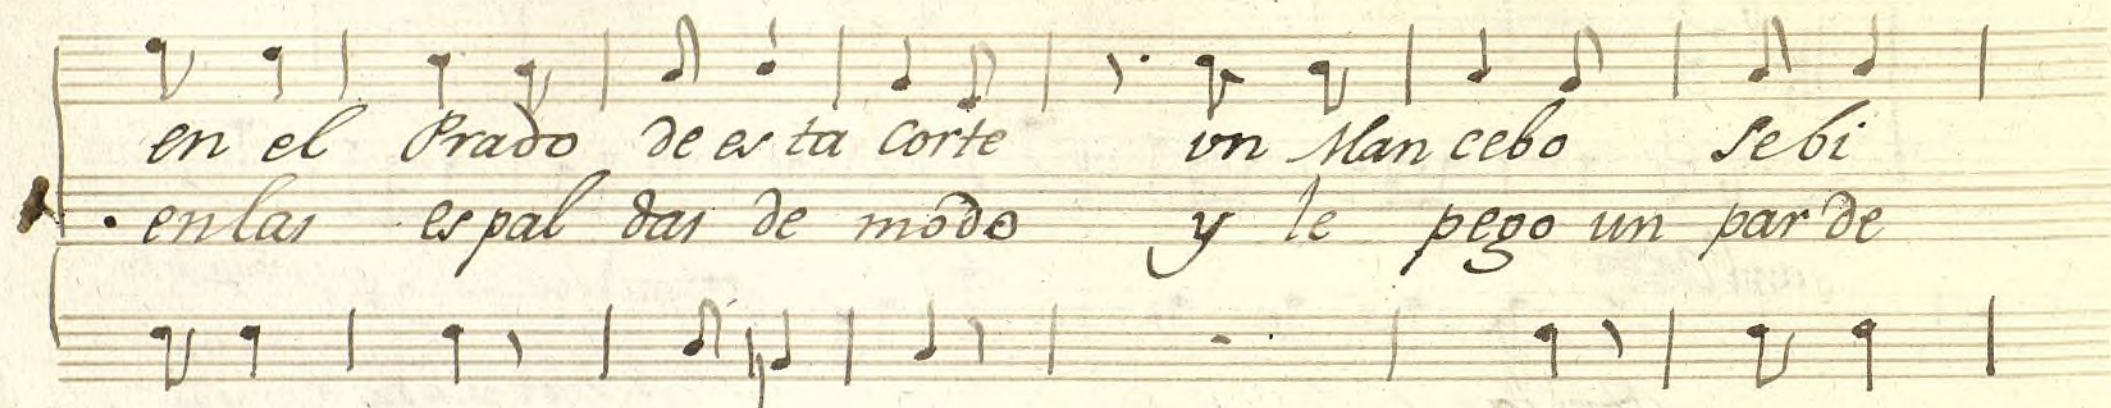 en el Prado de es ta Corte vn Man cebo Se bi
en las es pal das de modo y le pego un par de